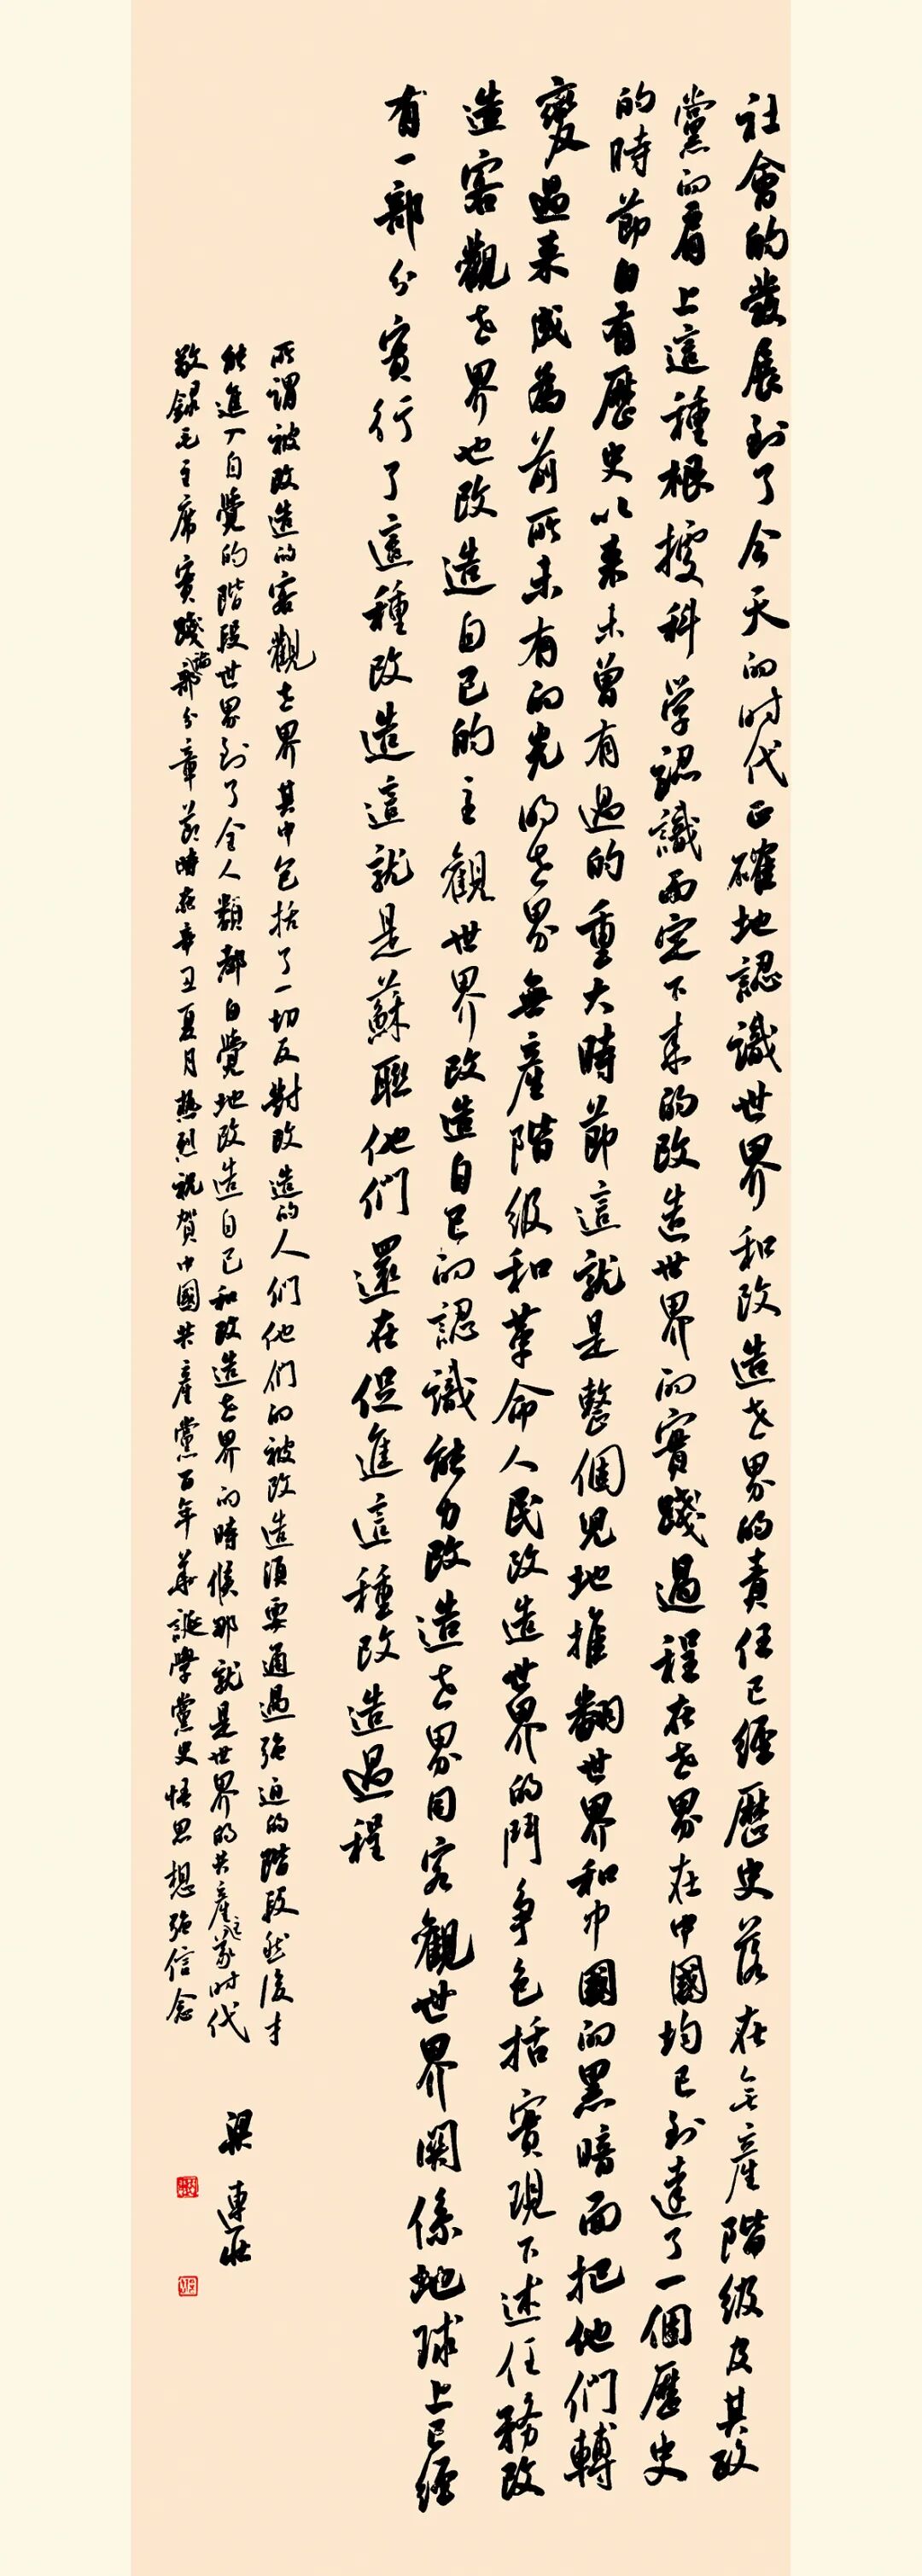 社會的發展到了今天的时代正確地認識世界和改造世界的責任已經歷史落在無產階級及其政
黨的肩上這種根據科学認識而定下来的改造世界的實踐過程在世界在中國均已到達了一個歷史
的時節自有歷史以来未曾有過的重大時節這就是整個兒地推翻世界和中國的黑暗面把他們轉
變過来成為前所未有的光明世界無產階级和革命人民改造世界的鬥争包括實現下述任務改
造客觀世界也改造自己的主觀世界改造自己的認識能力改造世界同客觀世界関係地球上已經
有一部分實行了這種改造這就是蘇聯他们還在促進這種改造過程
所謂被改造的客觀世界其中包括了一切反對改造的人們他們的被改造須要通過强迫的階段然後才
能進入自覺的階段世界到了全人類都自覺地改造自己和改造世界的時候那就是世界的共產主義时代
敬録毛主席實踐論部分章節時在辛丑夏月热烈祝賀中國共產黨百年華誕學黨史悟思想强信念
梁連庄